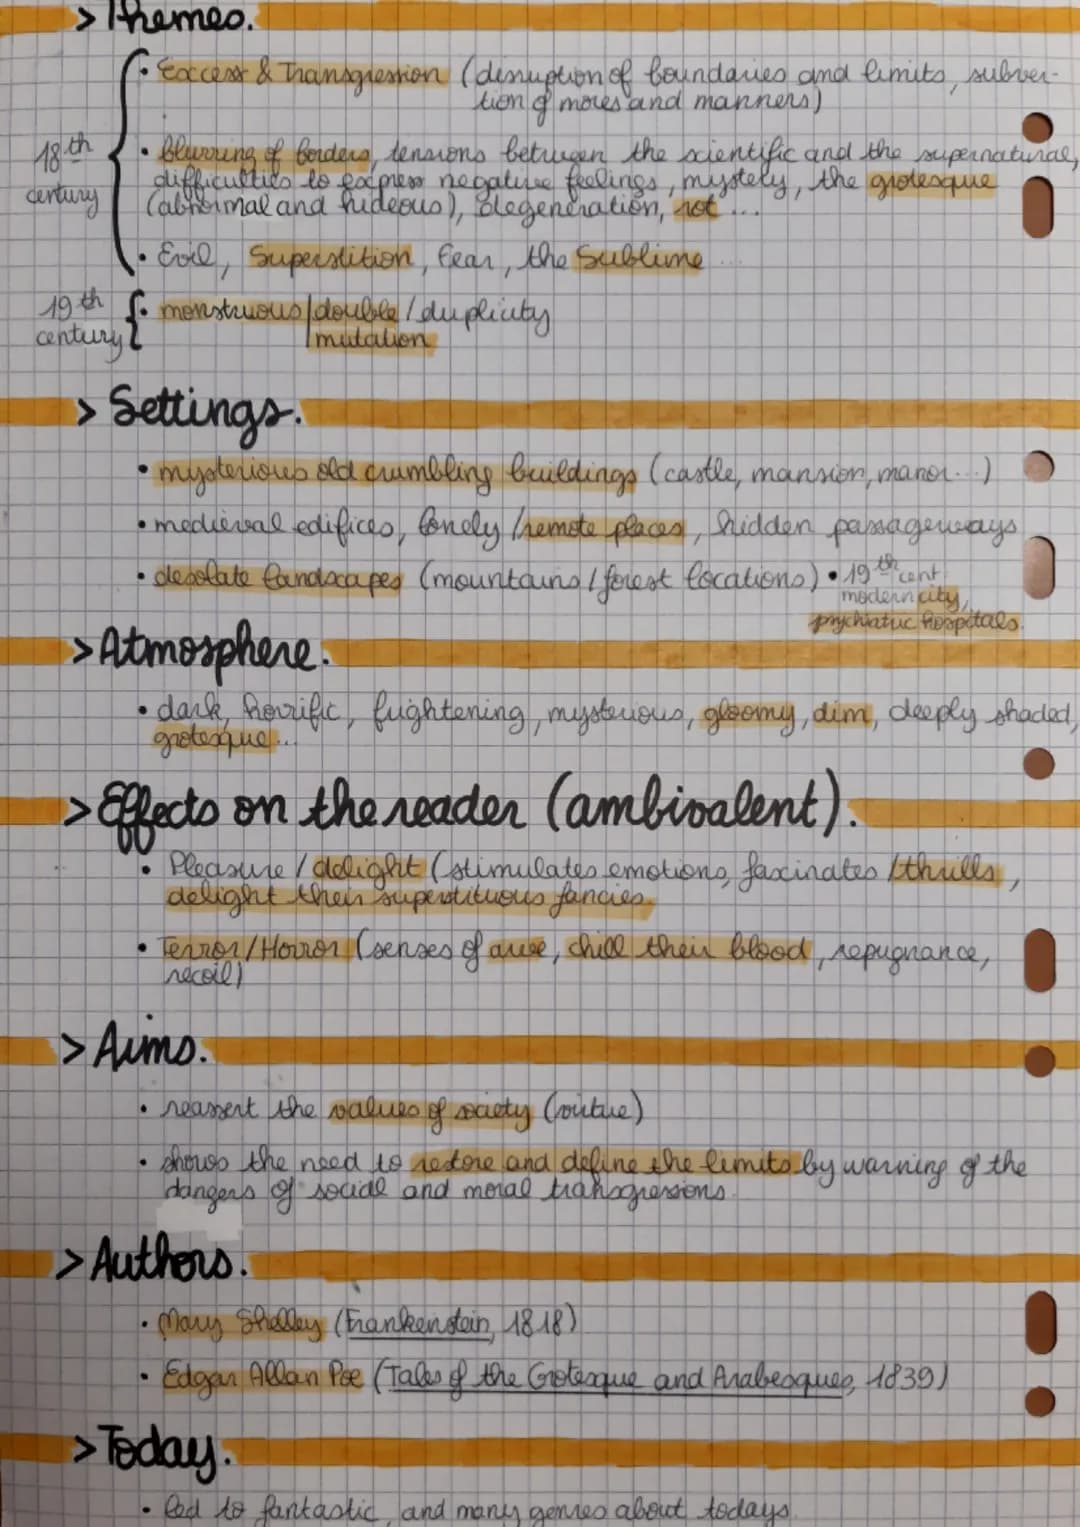 > Themes.
• Excess & Transgression (disruption of boundaries and limits, subver-
tion of mores and manners)
18th century
• blurring of borders, tensions between the scientific and the supernatural,
difficulties to express negative feelings, mystery, the grotesque
(abnormal and hideous), degeneration, rot ...
• Evil, Superstition, fear, the Sublime ...
19th century
• monstruous / double / duplicity
mutation
> Settings.
• mysterious old crumbling buildings (castle, mansion, manor...)
• medieval edifices, lonely / remote places, hidden passageways
• desolate landscapes (mountains / forest locations) • 19th cent
modern city,
psychiatric hospitals.
> Atmosphere.
• dark, horrific, frightening, mysterious, gloomy, dim, deeply shaded,
grotesque...
> Effects on the reader (ambivalent).
• Pleasure / delight (stimulates emotions, fascinates / thrills,
delight their superstituous fancies.
• Terror / Horror (senses of awe, chill their blood, repugnance,
recoil)
> Aims.
• reassert the values of society (virtue)
• shows the need to restore and define the limits by warning of the
dangers of social and moral transgressions.
> Authors.
• Mary Shelley (Frankenstein, 1818)
• Edgar Allan Poe (Tales of the Grotesque and Arabesques, 1839)
> Today.
• led to fantastic, and many genres about todays.